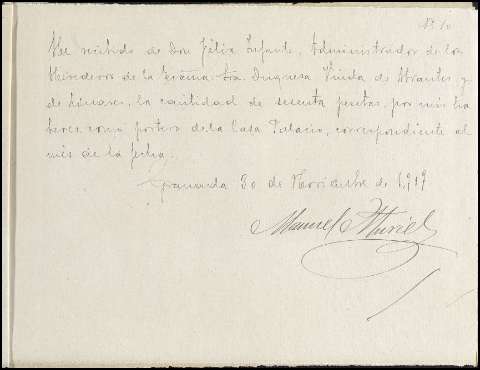 He recibido de Don Félix Infante, Administrador de los
Herederos de la Excma. Sra. Duquesa Viuda de Abrantes y
de Linares, la cantidad de sesenta pesetas, por mis ha
beres como portero de la Casa Palacio, correspondiente al
mes de la fecha.
Granada 30 de Noviembre de 1,919
Manuel Muriel